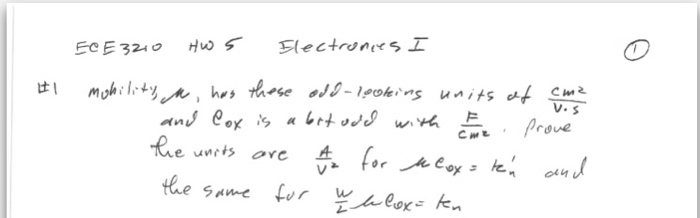 ECE 3210 HW 5 Electronics I ①
#1 mobility, μ, has these odd-looking units of cm²/V·s
and Cox is a bit odd with F/cm². Prove
the units are A/V² for μCox = kn' and
the same for W/L μCox = kn